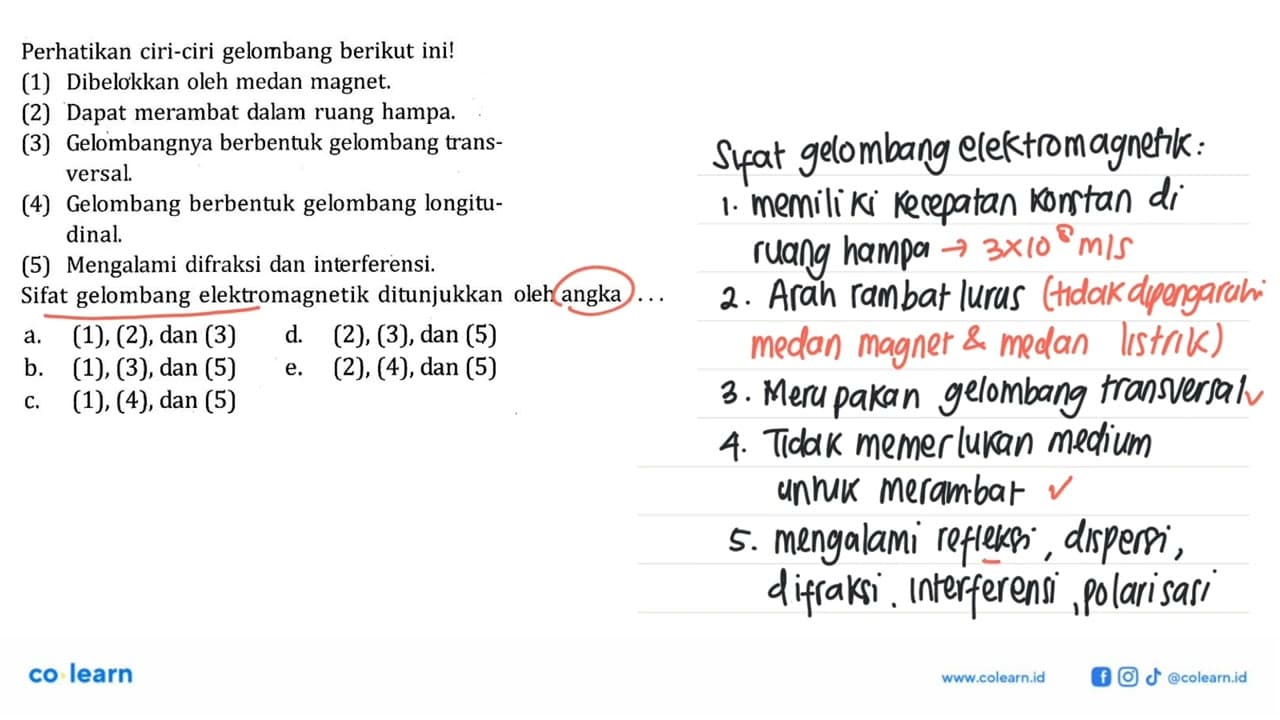 Perhatikan ciri-ciri gelombang berikut ini!
(1) Dibelokkan oleh medan magnet.
(2) Dapat merambat dalam ruang hampa.
(3) Gelombangnya berbentuk gelombang trans-
versal.
(4) Gelombang berbentuk gelombang longitu-
dinal.
(5) Mengalami difraksi dan interferensi.
Sifat gelombang elektromagnetik ditunjukkan oleh angka ...
a. (1), (2), dan (3) d. (2), (3), dan (5)
b. (1), (3), dan (5) e. (2), (4), dan (5)
c. (1), (4), dan (5)
Sifat gelombang elektromagnetik:
1. memiliki kecepatan konstan di
ruang hampa → 3×10⁸ m/s
2. Arah rambat lurus (tidak dipengaruhi
medan magnet & medan listrik)
3. Merupakan gelombang transversal ✓
4. Tidak memerlukan medium
untuk merambat ✓
5. mengalami refleksi, dispersi,
difraksi, interferensi, polarisasi
co learn
www.colearn.id
@colearn.id